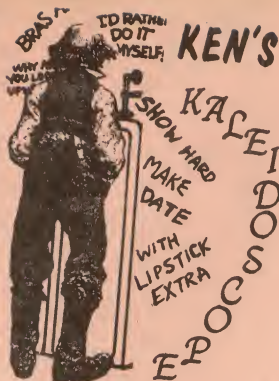 BRAS
I'D RATHER
DO IT
MYSELF!
WHY
YOU
KEN'S
KALEIDOSCOPE
SHOW HARD
MAKE
DATE
WITH
LIPSTICK
EXTRA